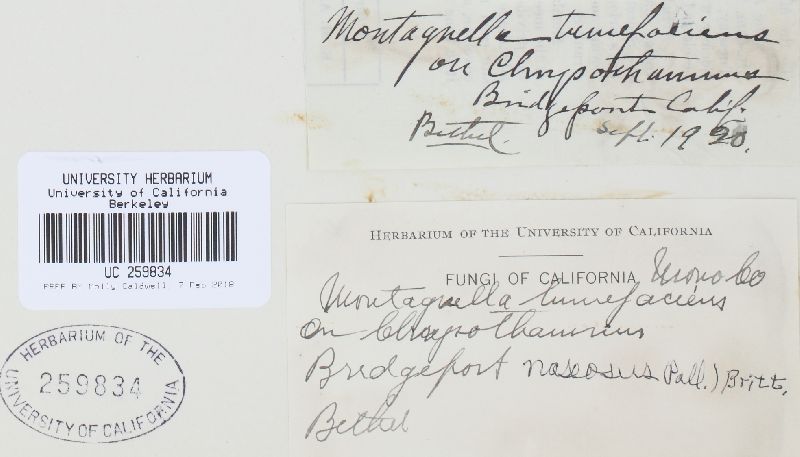 Montagnella tumefaciens
on Chrysothamnus
Bridgeport Calif.
Bethel. Sept. 1920.
UNIVERSITY HERBARIUM
University of California
Berkeley
UC 259834
PREP BY Molly Caldwell, 7 Feb 2018
HERBARIUM OF THE
259834
UNIVERSITY OF CALIFORNIA
HERBARIUM OF THE UNIVERSITY OF CALIFORNIA
FUNGI OF CALIFORNIA Mono Co
Montagnella tumefaciens
on Chrysothamnus
Bridgeport naseosus Pall.) Britt.
Bethel